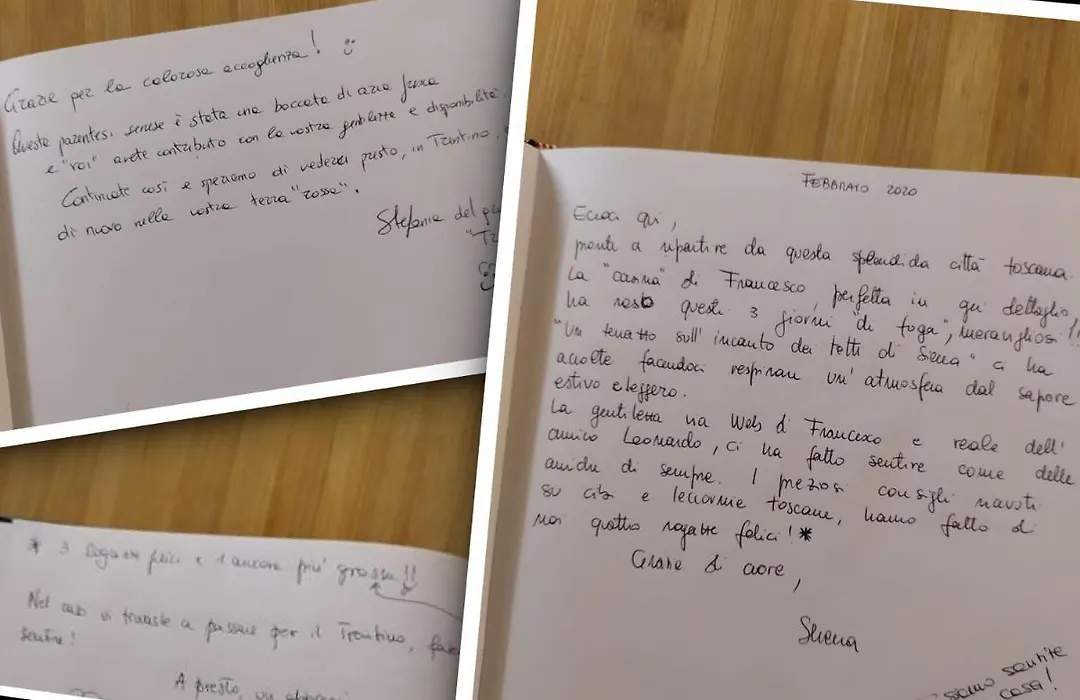 Grazie per la calorosa accoglienza!
Questa parentesi senese è stata una boccata di aria
e "voi" avete contributo con la vostra gentilezza e disponibilità.
Continuate così e speriamo di vederci presto, in Trentino,
di nuovo nella vostra terra "rossa".
Stefania del
FEBBRAIO 2020
Eccoci qui,
pronti a ripartire da questa splendida città toscana.
La "casina" di Francesco, perfetta in ogni dettaglio,
ha reso questi 3 giorni "di fuga", meravigliosi!!
"Un terrazzo sull'incanto dei tetti di Siena" ci ha
accolte facendoci respirare un'atmosfera dal sapore
estivo e leggero.
La gentilezza via Web di Francesco e reale dell'
amico Leonardo, ci ha fatto sentire come delle
amiche di sempre. I preziosi consigli ricevuti
su cibi e leccornie toscane, hanno fatto di
noi quattro ragazze felici! *
Grazie di cuore,
Serena
siamo sentite
casa!
* 3 Ragazze felici e 1 ancora più grossa!!
Nel caso vi troviate a passare per il Trentino,
sentire!
A presto, un